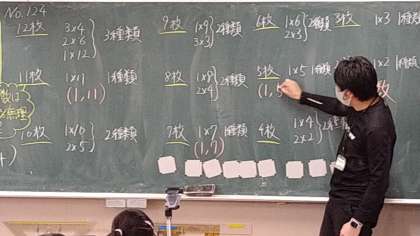 No.124
12枚
3×4
2×6
1×12
3種類
11枚
1×11
(1,11)
1種類
10枚
1×10
2×5
2種類
9枚
1×9
3×3
2種類
8枚
1×8
2×4
2種類
7枚
1×7
(1,7)
1種類
6枚
1×6
2×3
2種類
5枚
1×5
1種類
(1,5
4枚
1×4
2×2
2種類
3枚
1×3
1種
×2
枚